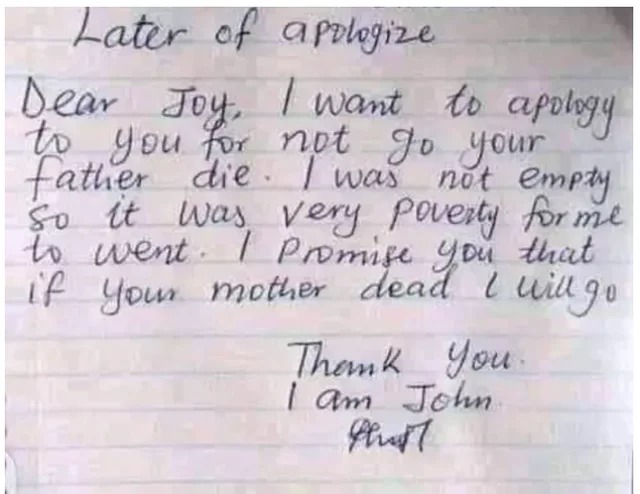 Later of apologize
Dear Joy, I want to apology
to you for not go your
father die. I was not empty
so it was very poverty for me
to went. I promise you that
if your mother dead I will go
Thank you.
I am John.